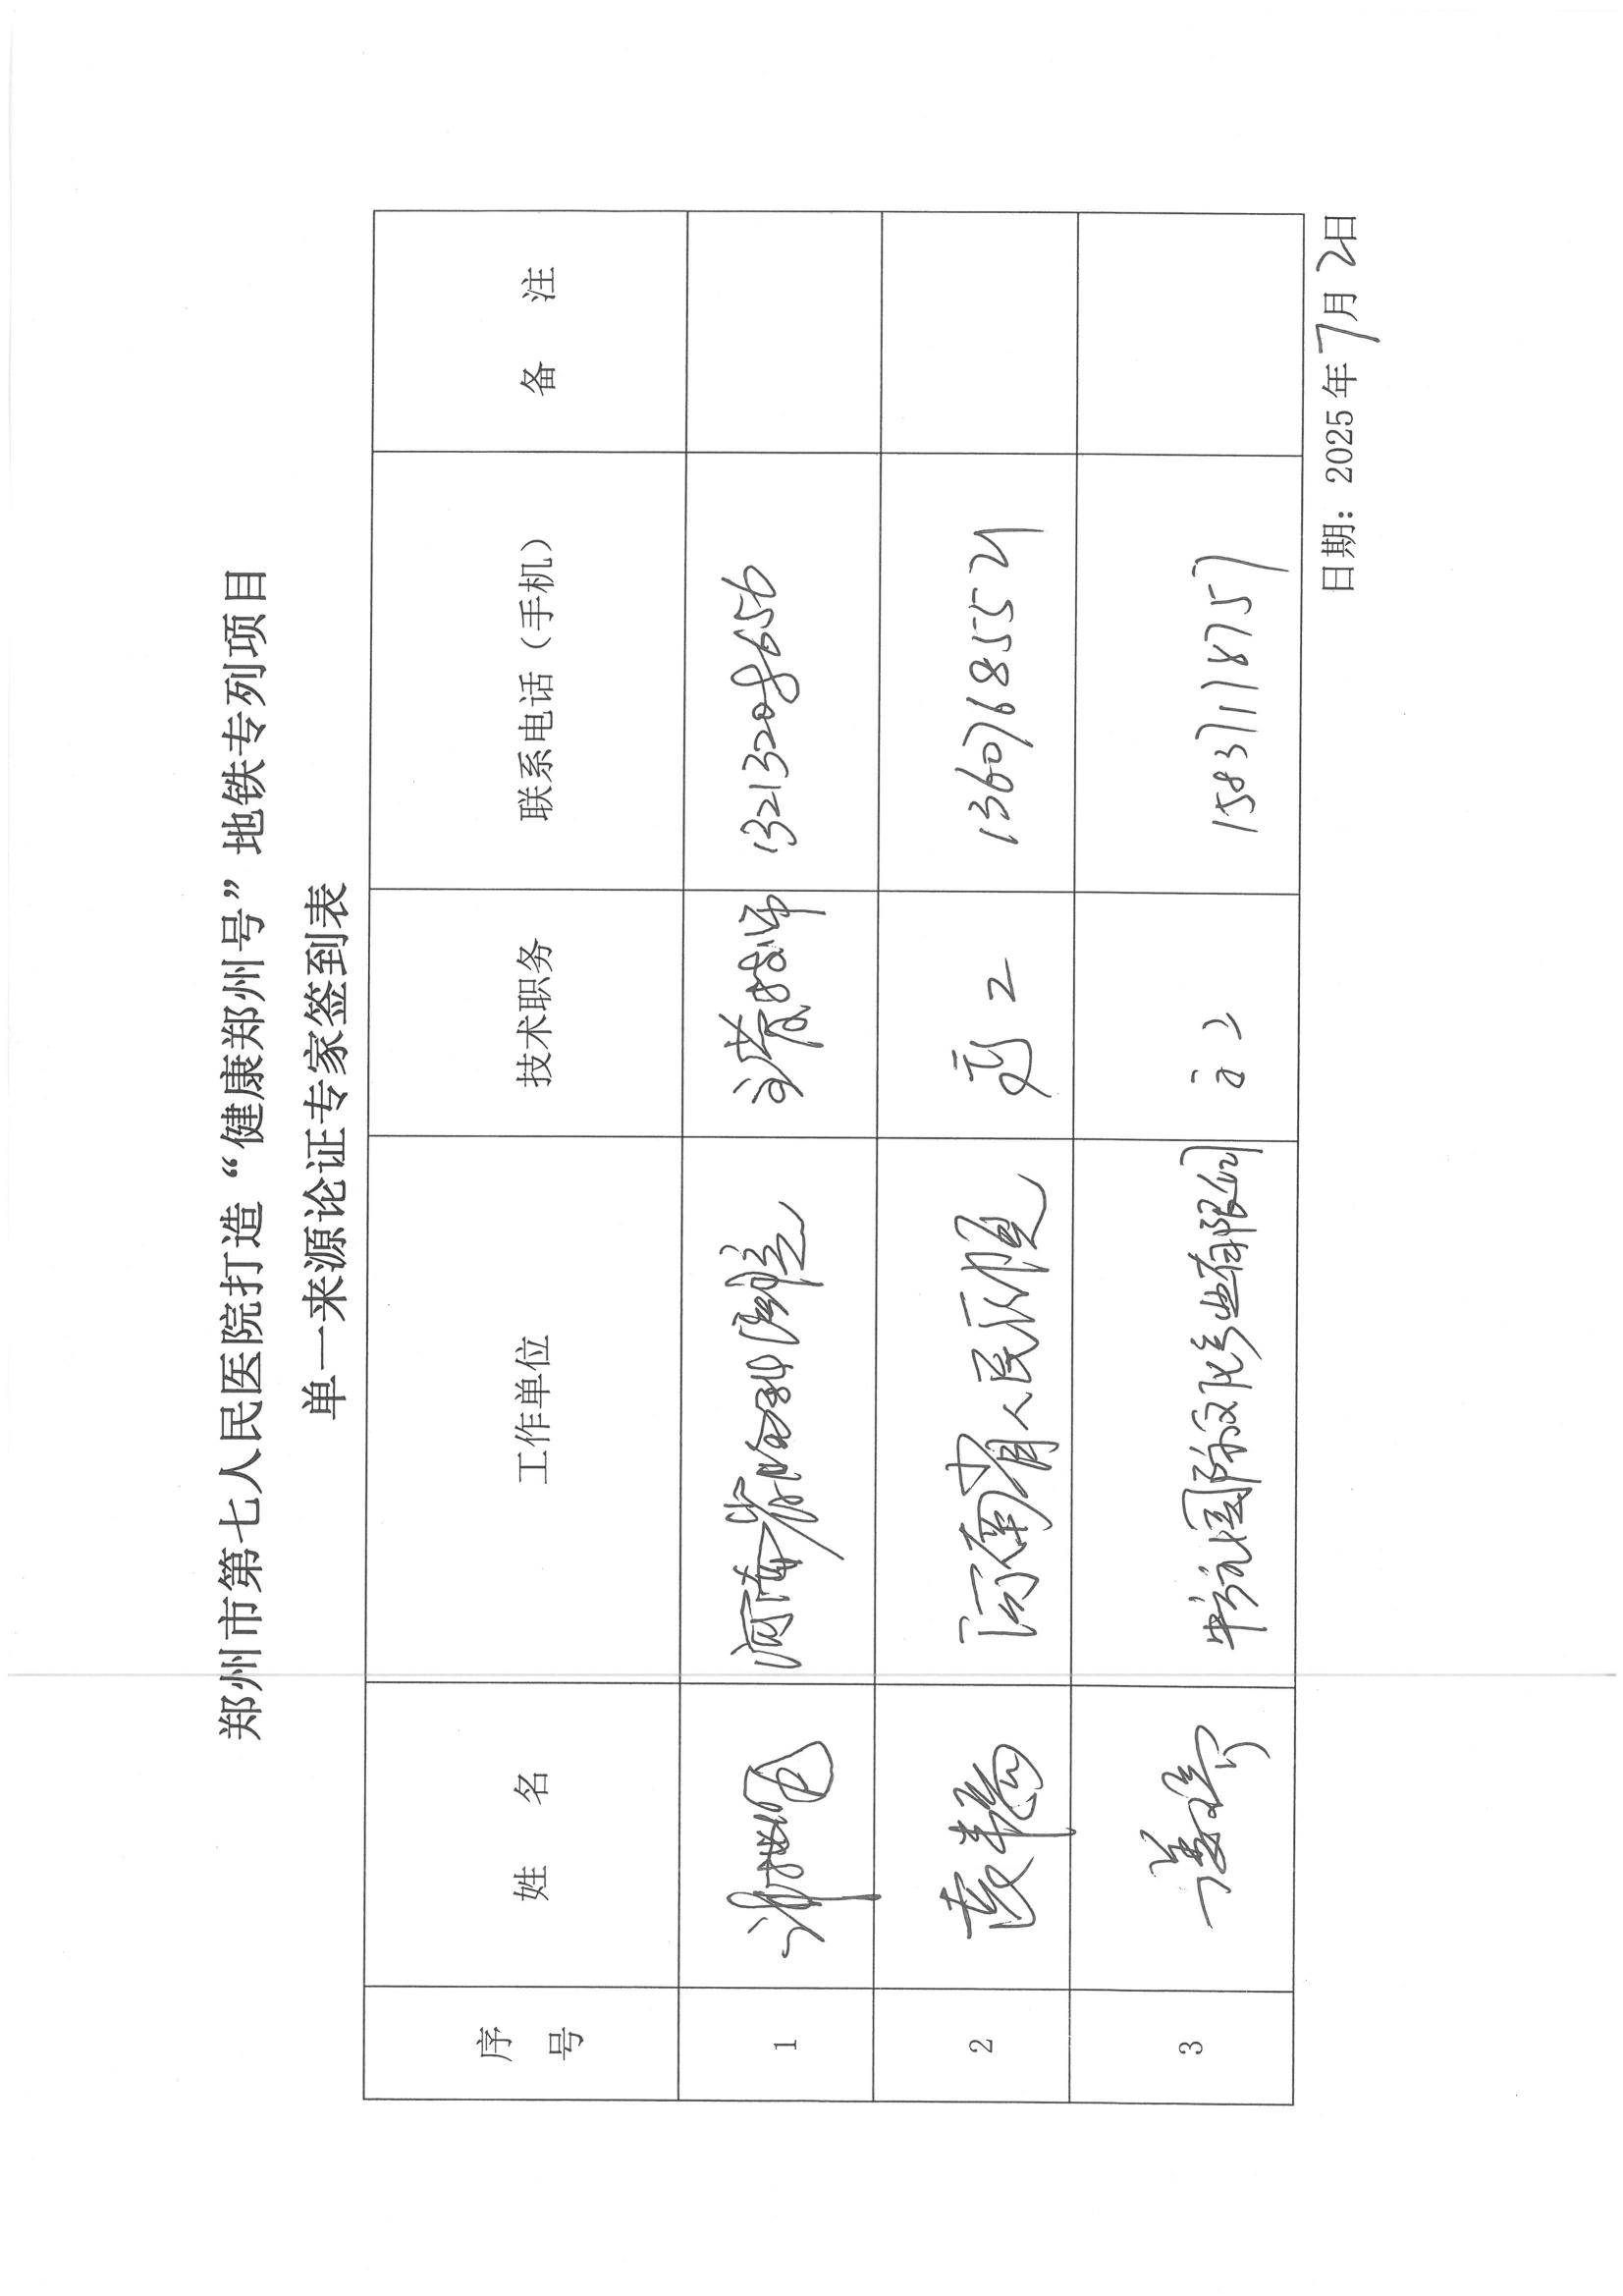 郑州市第七人民医院打造“健康郑州号”地铁专列项目
单一来源论证专家签到表
序号 姓 名 工作单位 技术职务 联系电话（手机） 备 注
1 河南省 医院 主管技师 13213208656
2 袁 河南省人民医院 高工 13607685521
3 姜 国际文化产业有限公司 高工 15837118757
日期：2025年7月2日